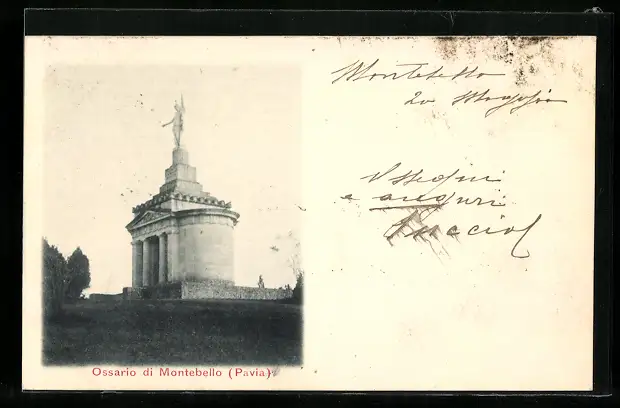 Montebello
20 Maggio
Ossequi
e auguri
Ossario di Montebello (Pavia)